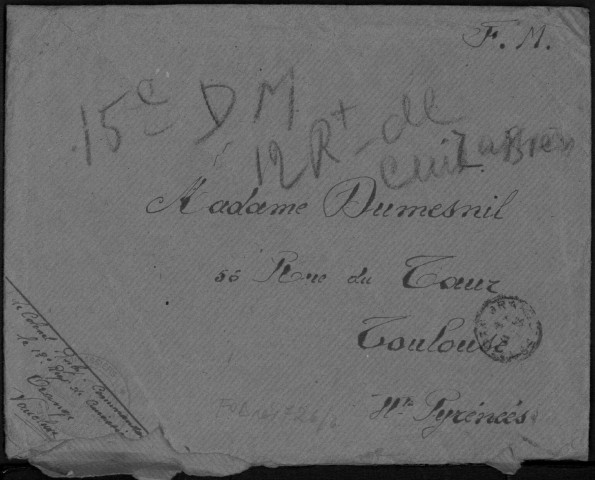 F. M.
15e DM
12 Rt de
Cuirassiers
Madame Dumesnil
56 Rue du Taur
Toulouse
Hte Pyrénées
Le Colonel Commandant
le 12e Rgt de Cuirassiers
Orange
Vaucluse